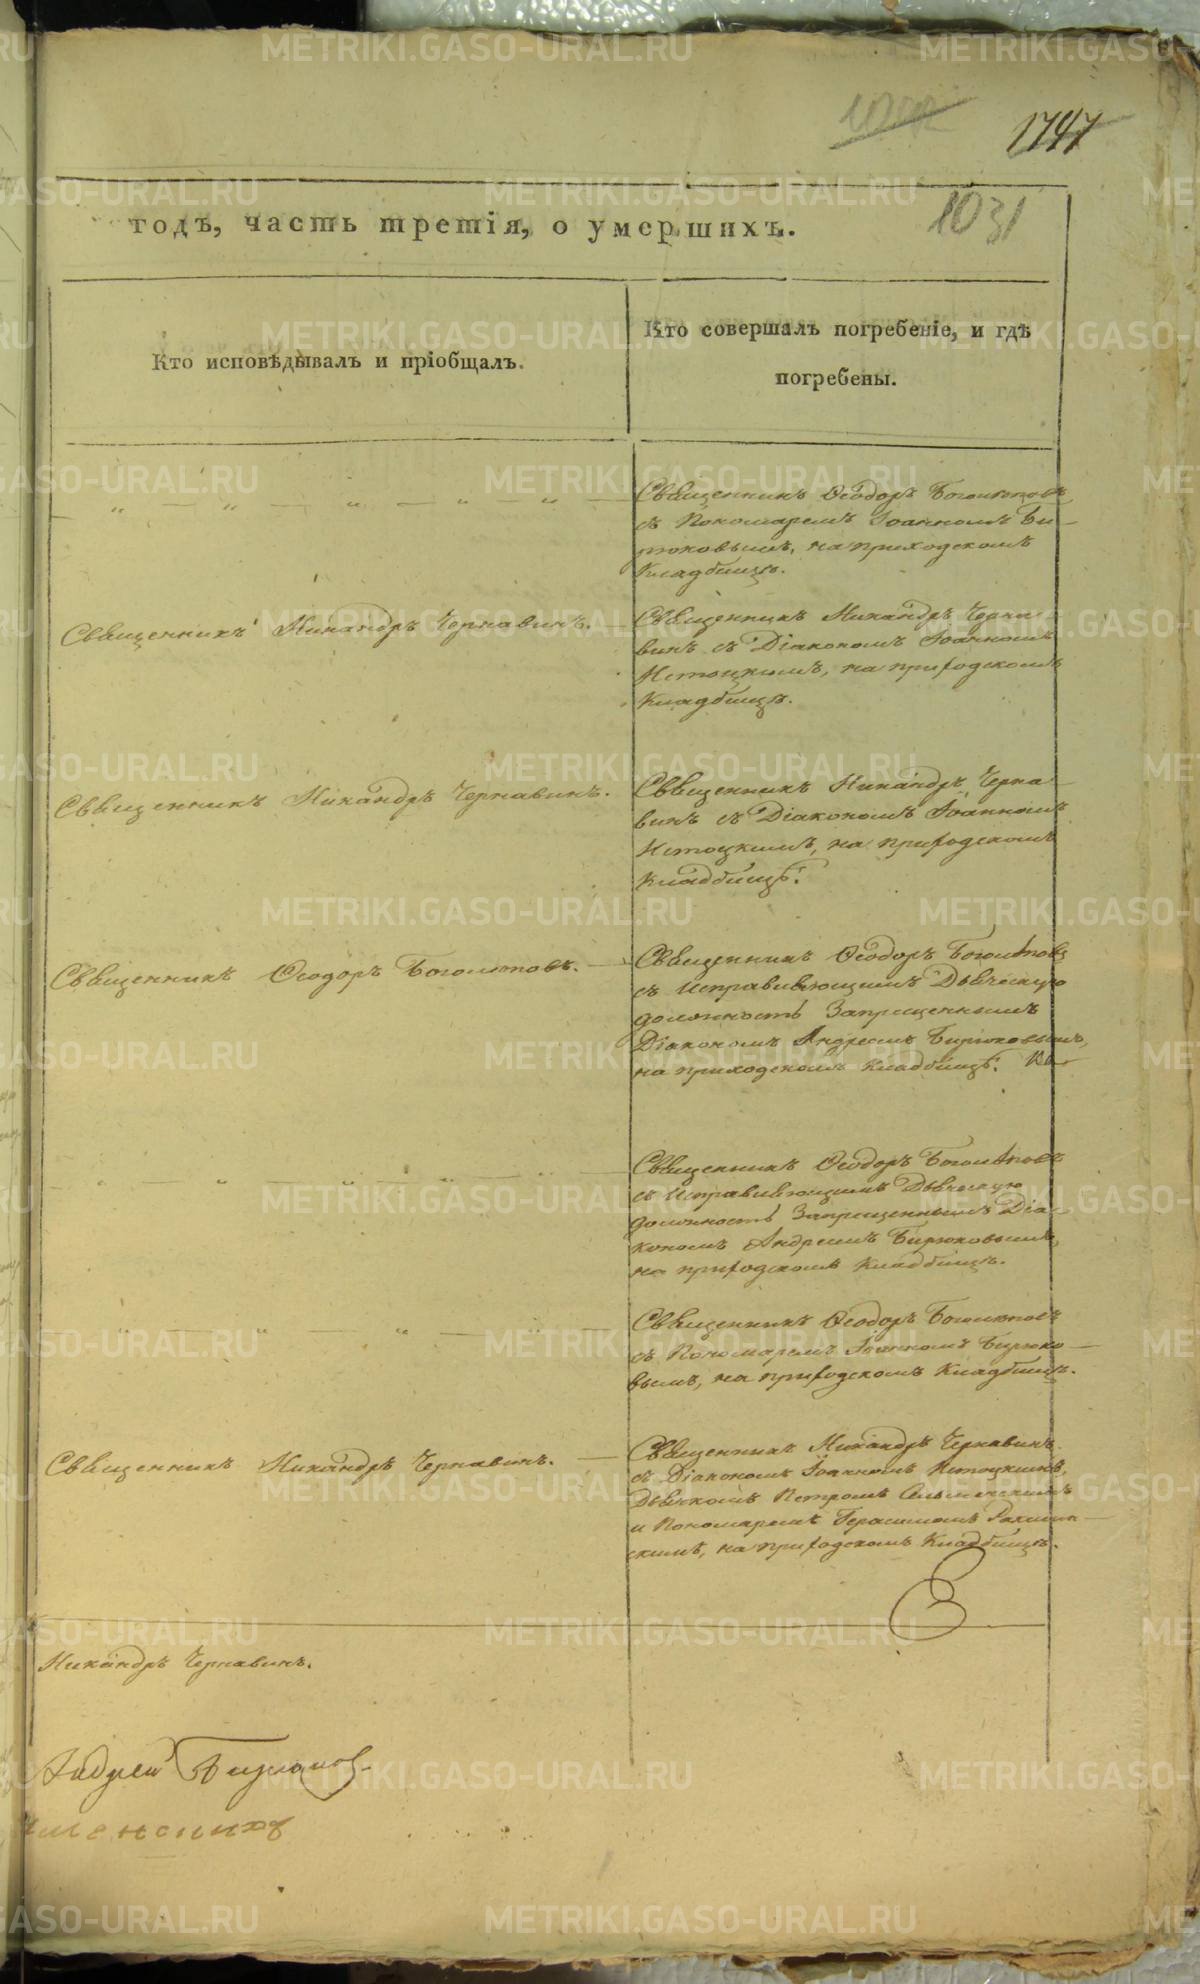 1747
1031
годъ, часть третія, о умершихъ.
Кто исповѣдывалъ и пріобщалъ.
Кто совершалъ погребеніе, и гдѣ
погребены.
Священникъ Ѳеодоръ Боголюповъ
съ Пономаремъ Іоанномъ Би-
рюковымъ, на приходскомъ
Кладбищѣ.
Священникъ Никандръ Чернавинъ.
Священникъ Никандръ Черна-
винъ съ Діакономъ Іоанномъ
Истоцкимъ, на приходскомъ
Кладбищѣ.
Священникъ Никандръ Чернавинъ.
Священникъ Никандръ Черна-
винъ съ Діакономъ Іоанномъ
Истоцкимъ, на приходскомъ
Кладбищѣ.
Священникъ Ѳеодоръ Боголюповъ.
Священникъ Ѳеодоръ Боголюповъ
съ Исправляющимъ Дьяческую
должность Запрещеннымъ
Діакономъ Андреемъ Бирюковымъ,
на приходскомъ Кладбищѣ.
Священникъ Ѳеодоръ Боголюповъ
съ Исправляющимъ Дьяческую
должность Запрещеннымъ Діа-
кономъ Андреемъ Бирюковымъ,
на приходскомъ Кладбищѣ.
Священникъ Ѳеодоръ Боголюповъ
съ Пономаремъ Іоанномъ Бирюко-
вымъ, на приходскомъ Кладбищѣ.
Священникъ Никандръ Чернавинъ.
Священникъ Никандръ Чернавинъ
съ Діакономъ Іоанномъ Истоцкимъ,
Дьячкомъ Петромъ
и Пономаремъ Герасимомъ
скимъ, на приходскомъ Кладбищѣ.
Никандръ Чернавинъ.
Андрей Бирюковъ
METRIKI.GASO-URAL.RU